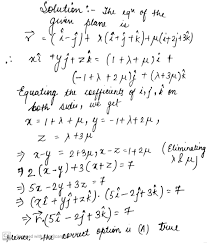 Solution:- The eqn of the
given plane is
r⃗ = (î-ĵ) + λ(î+ĵ+k̂)+μ(î-2ĵ+3k̂)
∴ xî +yĵ+zk̂ = (1+λ+μ)î +
(-1+λ-2μ)ĵ + (λ+3μ)k̂
Equating the coefficients of î,ĵ,k̂ on
both sides, we get
x=1+λ+μ, y=-1+λ-2μ,
z = λ+3μ
⇒ x-y = 2+3μ, x-z=1-2μ (Eliminating
λ & μ)
⇒ 2(x-y)+3(x-z)=7
⇒ 5x-2y-3z=7
⇒ (xî+yĵ+zk̂).(5î-2ĵ-3k̂)=7
⇒ r⃗.(5î-2ĵ-3k̂)=7
Hence, the correct option is (A) True